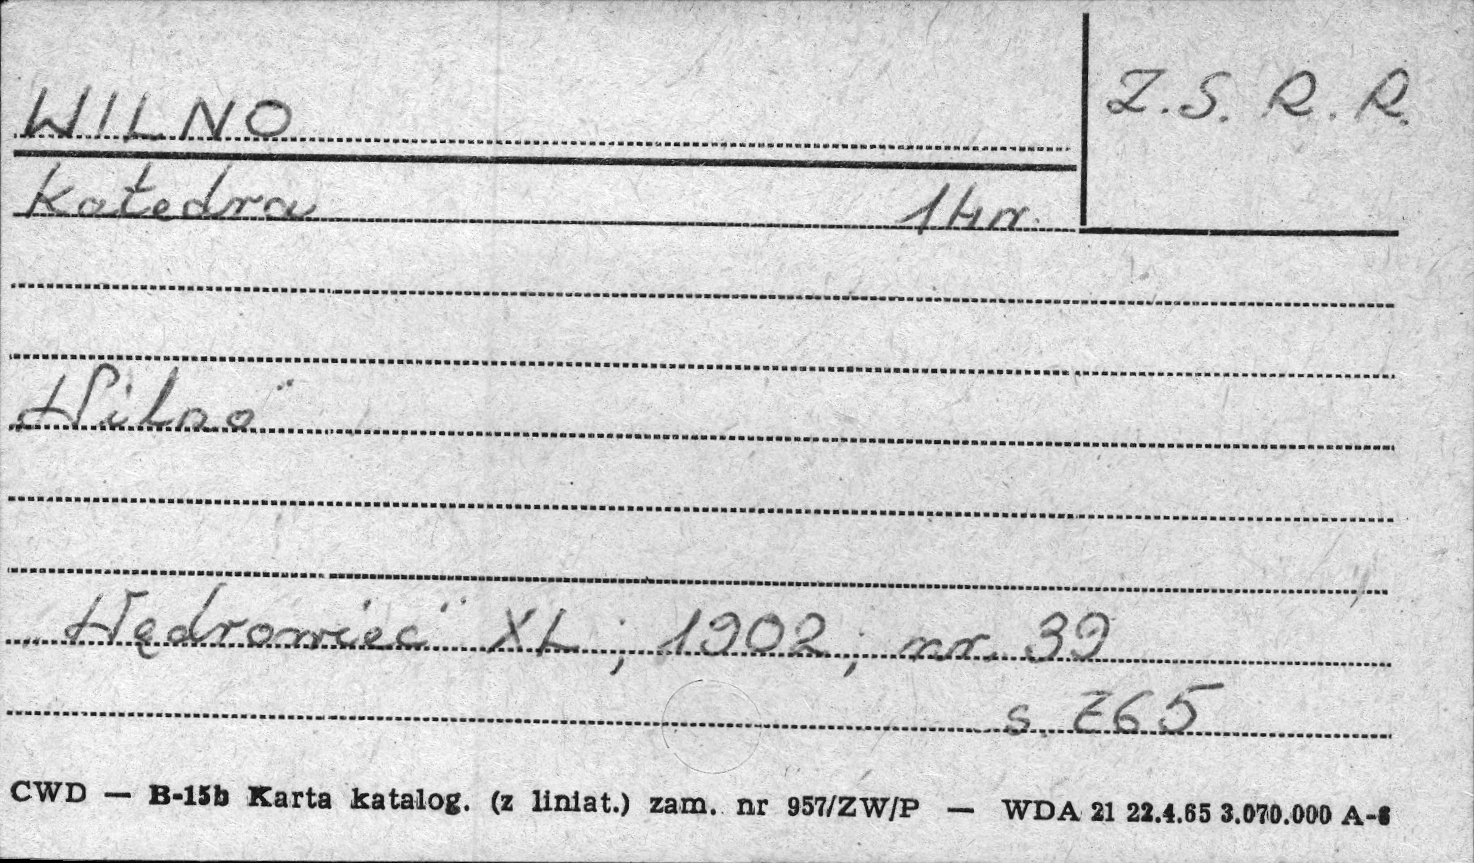 WILNO
Z. S. R. R.
Katedra
„Wilno”
„Wędrowiec” XL ; 1902 ; nr. 39
s. 765
CWD — B-15b Karta katalog. (z liniat.) zam. nr 957/ZW/P — WDA 21 22.4.65 3.070.000 A-6